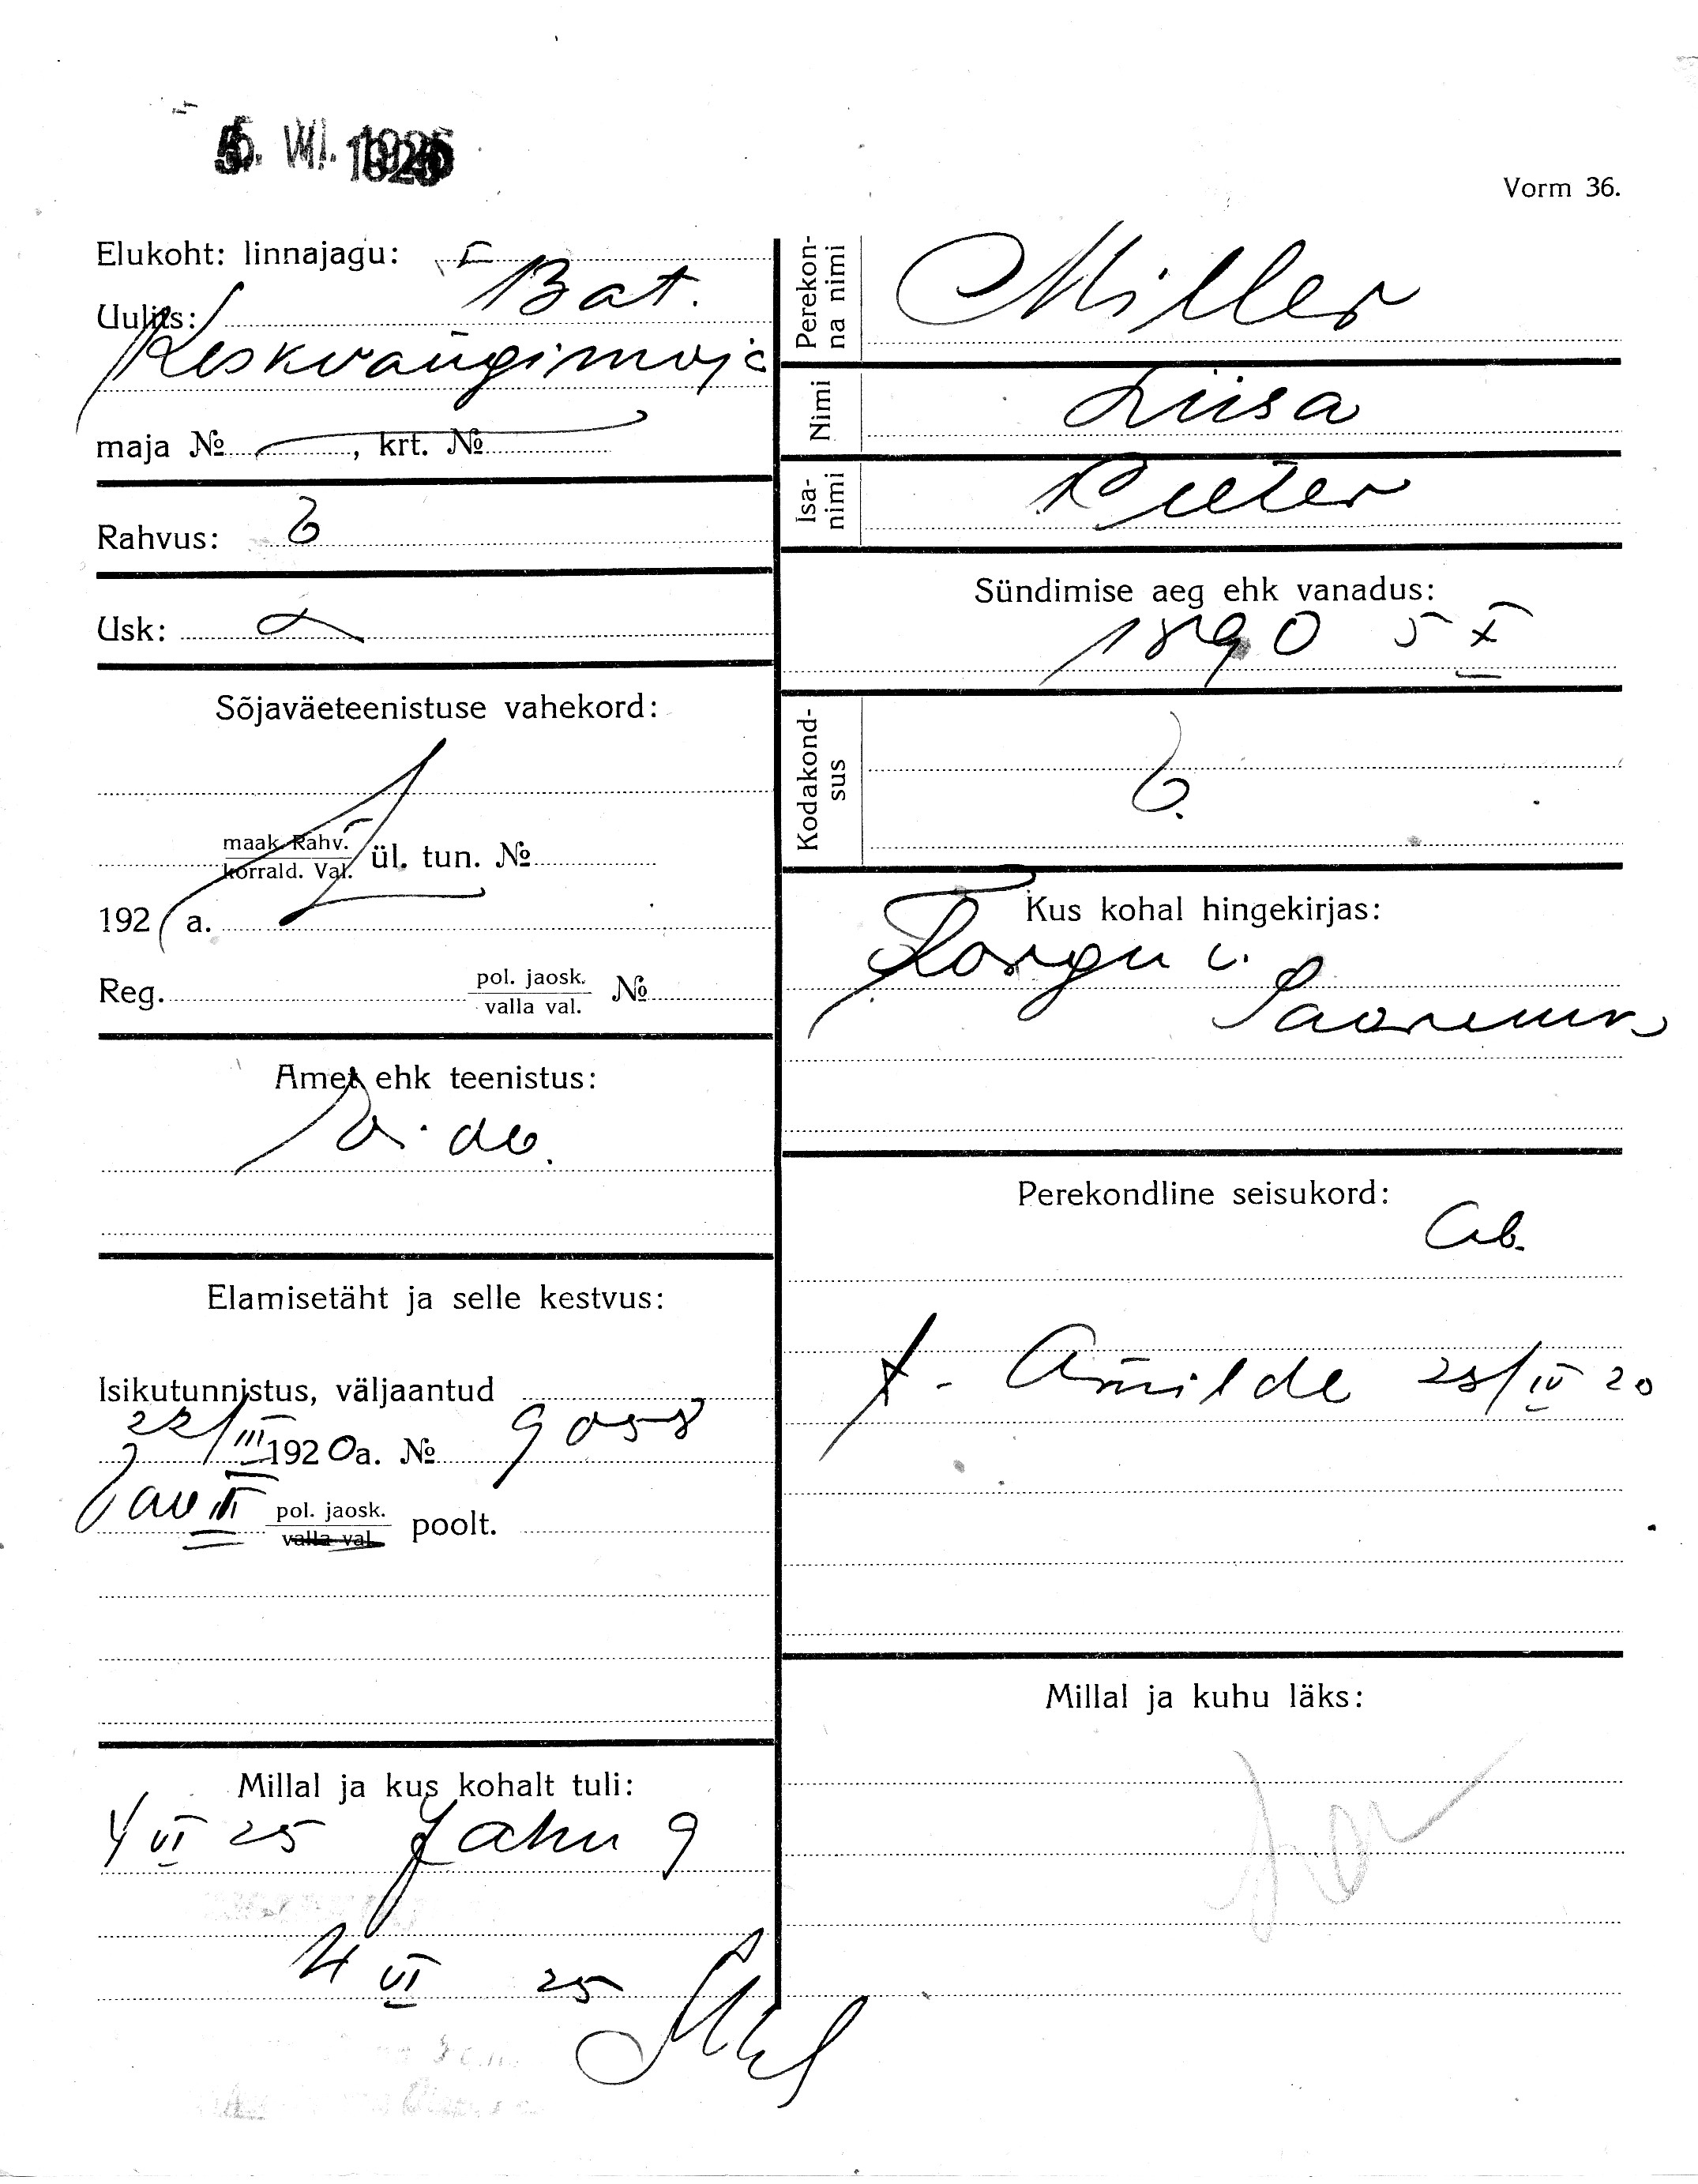 5. VI. 1925
Vorm 36.
Elukoht: linnajagu:
Bat.
Uulits:
Keskvangimaja
maja №, krt. №
Rahvus: E
Usk:
Sõjaväeteenistuse vahekord:
maak. Rahv.
korrald. Val. ül. tun. №
192 a.
Reg. pol. jaosk.
valla val. №
Amet ehk teenistus:
Elamisetäht ja selle kestvus:
Isikutunnistus, väljaantud
22/III 1920 a. №
III pol. jaosk.
valla val. poolt.
Millal ja kus kohalt tuli:
4 VI 25 Jahu 9
4 VI 25
Perekonna nimi Miller
Nimi Liisa
Isanimi Peeter
Sündimise aeg ehk vanadus:
1890 5 X
Kodakondsus E.
Kus kohal hingekirjas:
Torgu v.
Saaremaa
Perekondline seisukord:
Ab.
t. Amilde 28/IV 20
Millal ja kuhu läks: